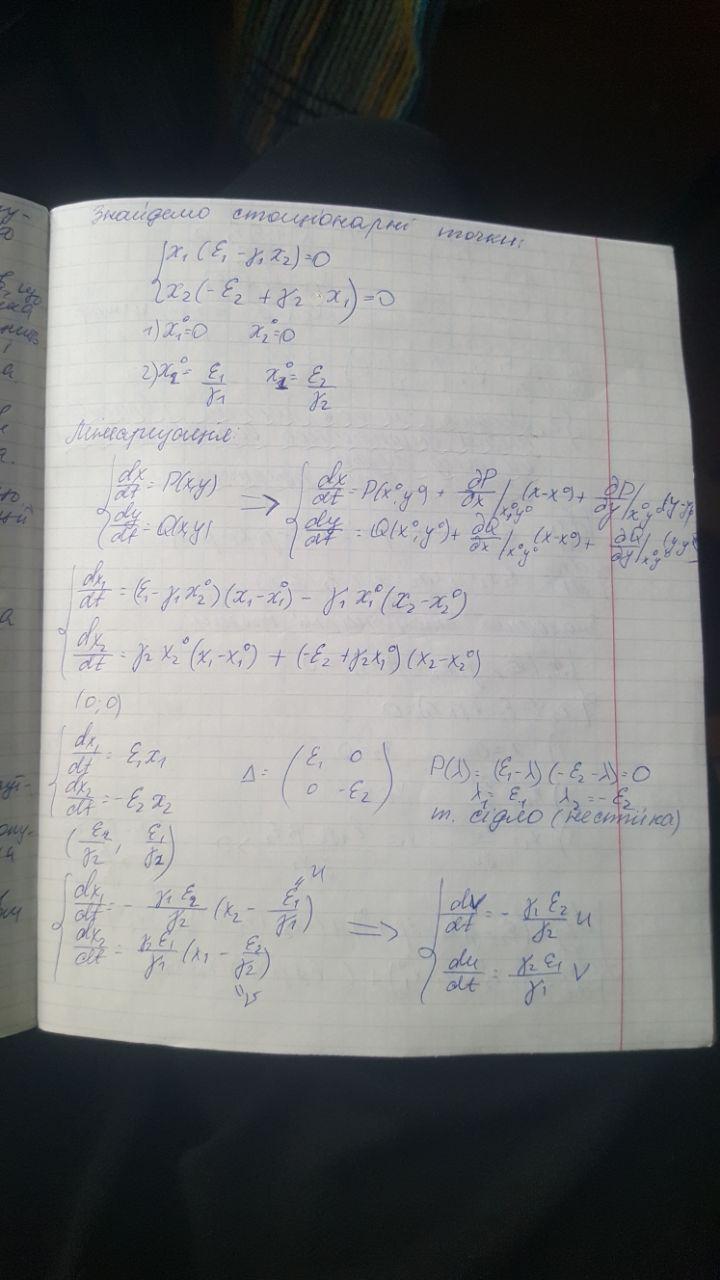 Знайдемо стаціонарні точки:
{ x₁(ε₁ - γ₁x₂) = 0
{ x₂(-ε₂ + γ₂·x₁) = 0
1) x₁⁰=0 x₂⁰=0
2) x₂⁰ = ε₁/γ₁ x₁⁰ = ε₂/γ₂
Лінеаризація:
{ dx/dt = P(x,y) ⟹ { dx/dt = P(x⁰,y⁰) + ∂P/∂x|x⁰y⁰ (x-x⁰) + ∂P/∂y|x⁰y⁰ (y-y⁰)
{ dy/dt = Q(x,y) { dy/dt = Q(x⁰,y⁰) + ∂Q/∂x|x⁰y⁰ (x-x⁰) + ∂Q/∂y|x⁰y⁰ (y-y⁰)
{ dx₁/dt = (ε₁ - γ₁x₂⁰)(x₁-x₁⁰) - γ₁x₁⁰(x₂-x₂⁰)
{ dx₂/dt = γ₂x₂⁰(x₁-x₁⁰) + (-ε₂+γ₂x₁⁰)(x₂-x₂⁰)
(0;0)
{ dx₁/dt = ε₁x₁ Δ = ( ε₁ 0 P(λ) = (ε₁-λ)(-ε₂-λ)=0
{ dx₂/dt = -ε₂x₂ 0 -ε₂ ) λ₁ = ε₁ λ₂ = -ε₂
т. сідло (нестійка)
(ε₂/γ₂, ε₁/γ₂)
{ dx₁/dt = - γ₁ε₂/γ₂ (x₂ - ε₁/γ₁) "u ⟹ { dv/dt = - γ₁ε₂/γ₂ u
{ dx₂/dt = γ₂ε₁/γ₁ (x₁ - ε₂/γ₂) "v { du/dt = γ₂ε₁/γ₁ v